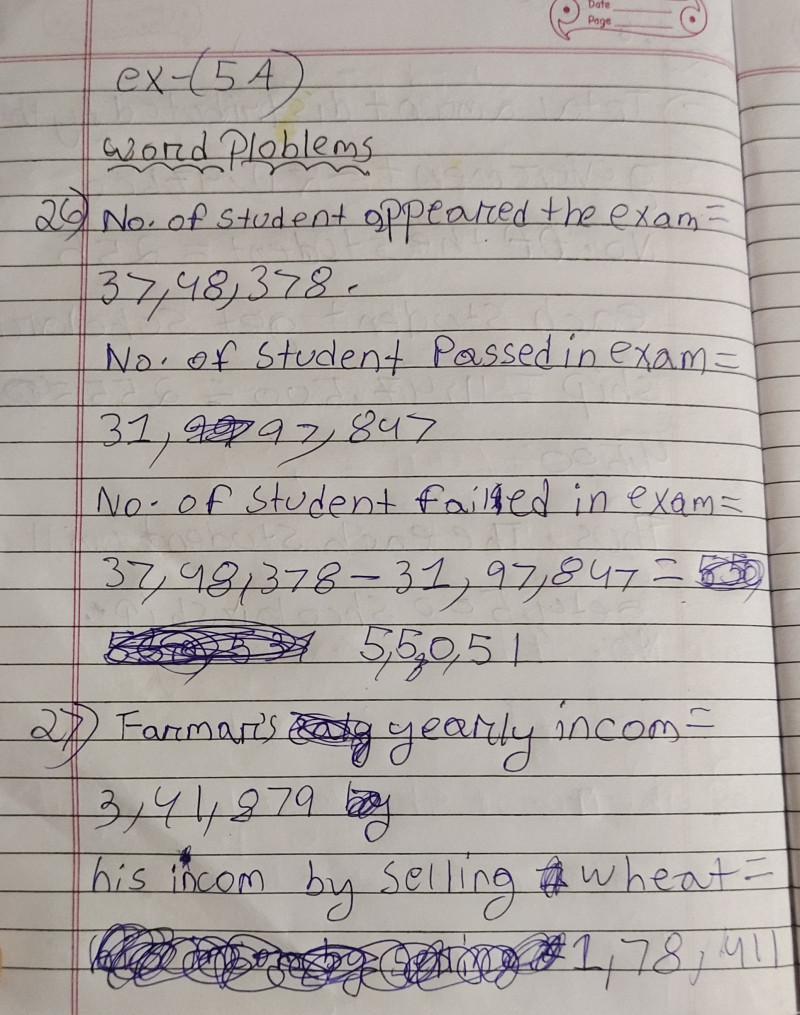 Date
Page
ex-(5A)
Word Ploblems
26) No. of student appeared the exam=
37,48,378.
No. of student Passed in exam=
31, 97,847
No. of student failed in exam=
37,48,378-31,97,847=
5,5,0,51
27) Farmar's yearly incom=
3,41,879
his incom by selling wheat=
1,78,411